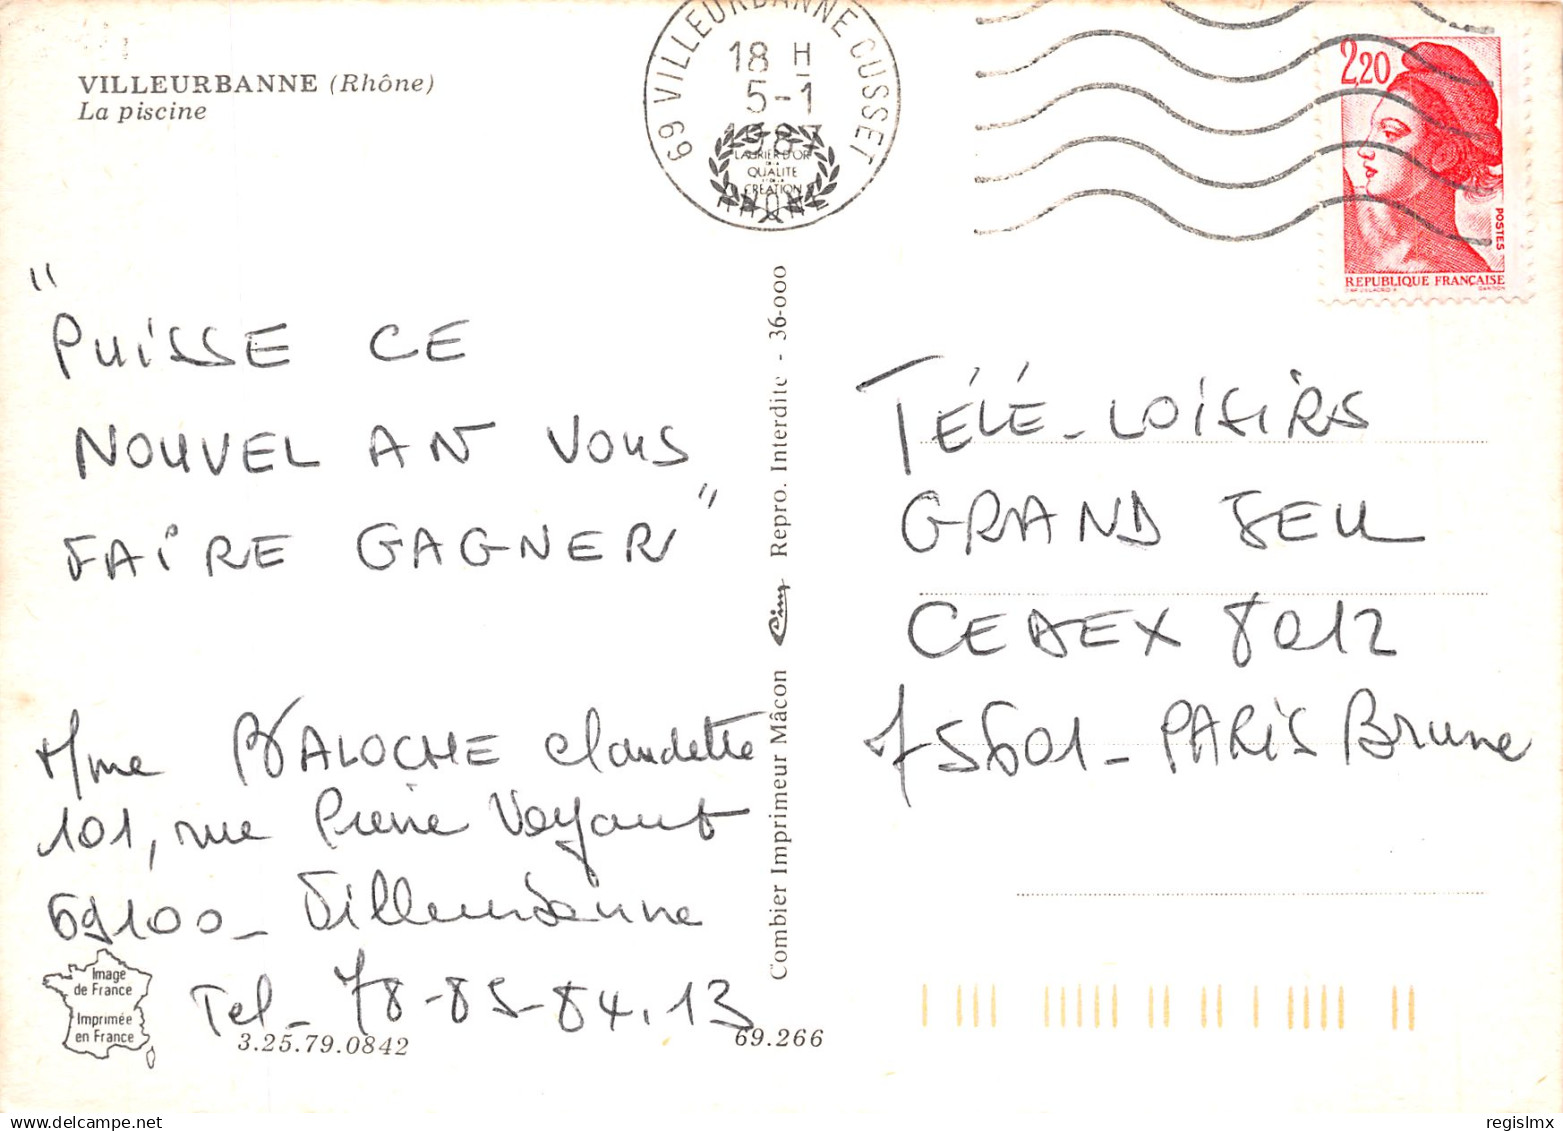 VILLEURBANNE (Rhône)
La piscine
69 VILLEURBANNE CUSSET
18 H
5-1
1987
RHONE
LAURIER D'OR
DE LA
QUALITE
CREATION
2,20
POSTES
REPUBLIQUE FRANÇAISE
"PUISSE CE
NOUVEL AN VOUS
FAIRE GAGNER"
Mme BALOCHE Claudette
101, rue Pierre Voyant
69100 - Villeurbanne
Tel - 78-85-84.13
Image
de France
Imprimée
en France
3.25.79.0842
69.266
Combier Imprimeur Mâcon Cim Repro. Interdite - 36-000
TÉLÉ-LOISIRS
GRAND JEU
CEDEX 8012
75601 - PARIS Brune
regislmx